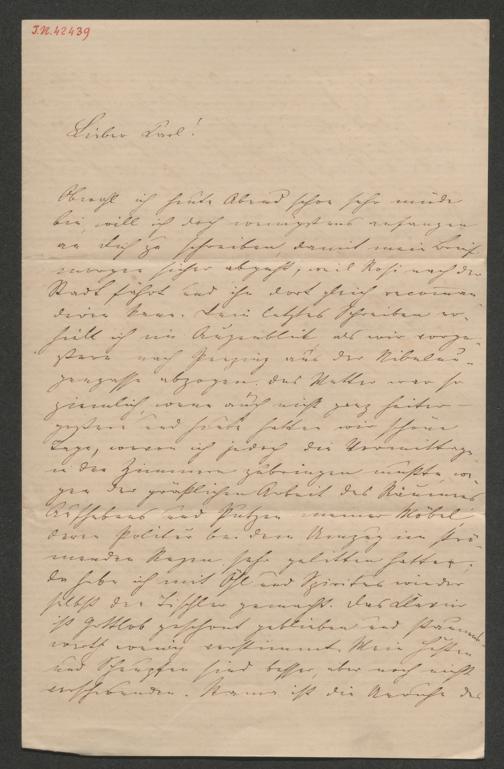 I.N. 42439
Lieber Carl!
Obwohl ich heute Abend schon sehr müde
bin, will ich doch wenigstens anfangen
an Dich zu schreiben, damit mein Brief
morgen sicher abgeht, weil Rosi nach der
Stadt fährt und ihn dort gleich recomman
diren kann. Dein letztes Schreiben er-
hielt ich im Augenblick als wir vorge-
stern nach aus der Nibelun-
gengasse abzogen. Das Wetter war so
ziemlich wenn auch nicht ganz heiter
gestern und heute hatten wir schöne
Tage, wovon ich jedoch die Vormittage
in den Zimmern zubringen mußte we-
gen der gräßlichen Arbeit des Räumens
Aufhebens und Putzen meiner Möbel
deren Politur bei dem Umzug im strö-
menden Regen sehr gelitten hatten;
da habe ich mit Öhl und Spiritus wieder
selbst den Tischler gemacht. Das Clavier
ist Gottlob geschont geblieben und
wenig verstimmt. Mein Husten
und Schnupfen sind besser, aber noch nicht
verschwunden. ist die Ursache des